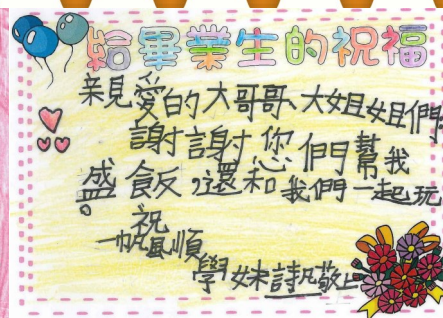 給畢業生的祝福
親愛的大哥哥、大姐姐們
謝謝您們幫我
盛飯,還和我們一起玩
。
祝
一帆風順
學妹詩凡敬上